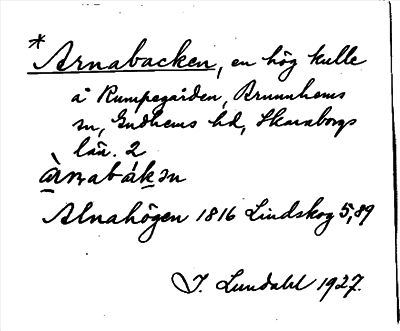 * Arnabacken, en hög kulle
å Rumpegården, Brunnhems
sn, Gudhems hd, Skaraborgs
län. 2
à̱rnabáḵən
Alnahögen 1816 Lindskog 5,89
I. Lundahl 1927.